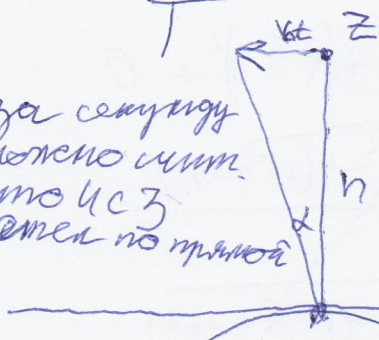 Vкt Z
за секунду
можно счит.
что ИСЗ h
летел по прямой α